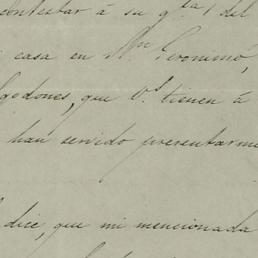 contestar á su g.ta 1 del
casa en Sn Geronimo,
godones, que Vs tienen á
han servido presentarme
dice, que mi mencionada